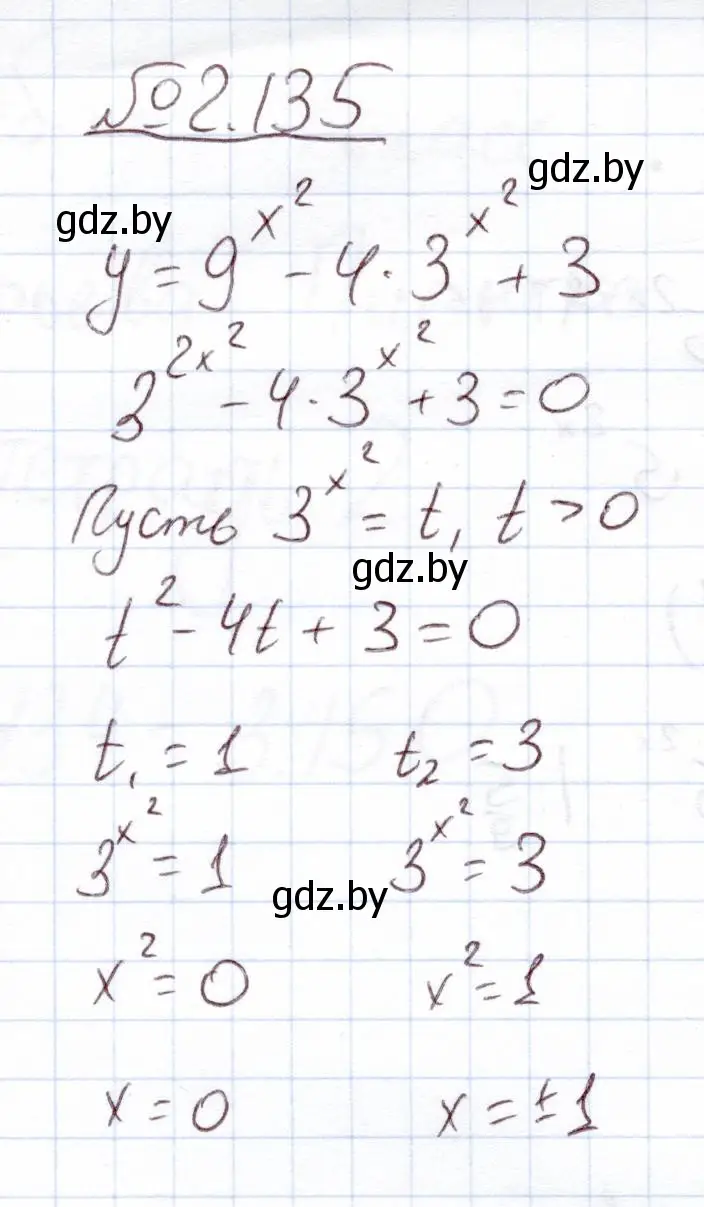 № 2.135
gdz.by
gdz.by
y = 9^x² - 4·3^x² + 3
3^2x² - 4·3^x² + 3 = 0
Пусть 3^x² = t, t > 0
gdz.by
t² - 4t + 3 = 0
t₁ = 1 t₂ = 3
3^x² = 1 3^x² = 3
gdz.by
x² = 0 x² = 1
x = 0 x = ±1